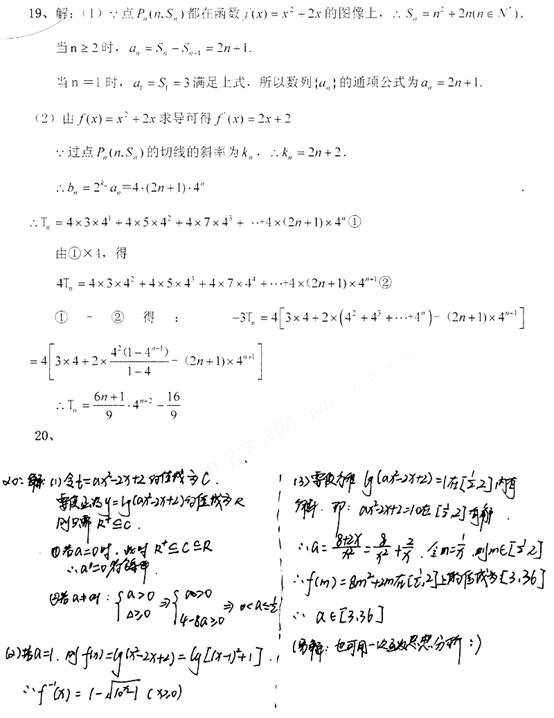 19、解:(1)∵点Pₙ(n,Sₙ)都在函数f(x)=x²+2x的图像上,∴Sₙ=n²+2n(n∈N*),
当n≥2时,aₙ=Sₙ−Sₙ₋₁=2n+1.
当n=1时,a₁=S₁=3满足上式,所以数列{aₙ}的通项公式为aₙ=2n+1.
(2)由f(x)=x²+2x求导可得f′(x)=2x+2
∵过点Pₙ(n,Sₙ)的切线的斜率为kₙ,∴kₙ=2n+2.
∴bₙ=2^{kₙ}·aₙ=4·(2n+1)·4ⁿ
∴Tₙ=4×3×4¹+4×5×4²+4×7×4³+···+4×(2n+1)×4ⁿ①
由①×4,得
4Tₙ=4×3×4²+4×5×4³+4×7×4⁴+···+4×(2n+1)×4ⁿ⁺¹②
①−②得: −3Tₙ=4[3×4+2×(4²+4³+···+4ⁿ)−(2n+1)×4ⁿ⁺¹]
=4[3×4+2×4²(1−4ⁿ⁻¹)/(1−4)−(2n+1)×4ⁿ⁺¹]
∴Tₙ=(6n+1)/9·4ⁿ⁺²−16/9
20、
20:解:(1)令t=ax²−2x+2的值域为C.
y=lg(ax²−2x+2)的值域为R
则只需R⁺⊆C.
①若a=0时,此时R⁺⊆C⊆R
∴a=0符合
②若a≠0时:{a>0 Δ≥0 ⇒ {a>0 4−8a≥0 ⇒ 0<a≤1/2
(2)若a=1.则f(x)=lg(x²−2x+2)=lg[(x−1)²+1].
∴f⁻¹(x)=1−√(10ˣ−1)(x≥0)
(3) lg(ax²−2x+2)=1在[1/2,2]内有
解.即:ax²−2x+2=10在[1/2,2]有解.
∴a=(8+2x)/x²=8/x²+2/x,令m=1/x,则m∈[1/2,2]
∴f(m)=8m²+2m在[1/2,2]上的值域为[3,36]
∴a∈[3,36]
(另解:也可用二次函数思想分析:)